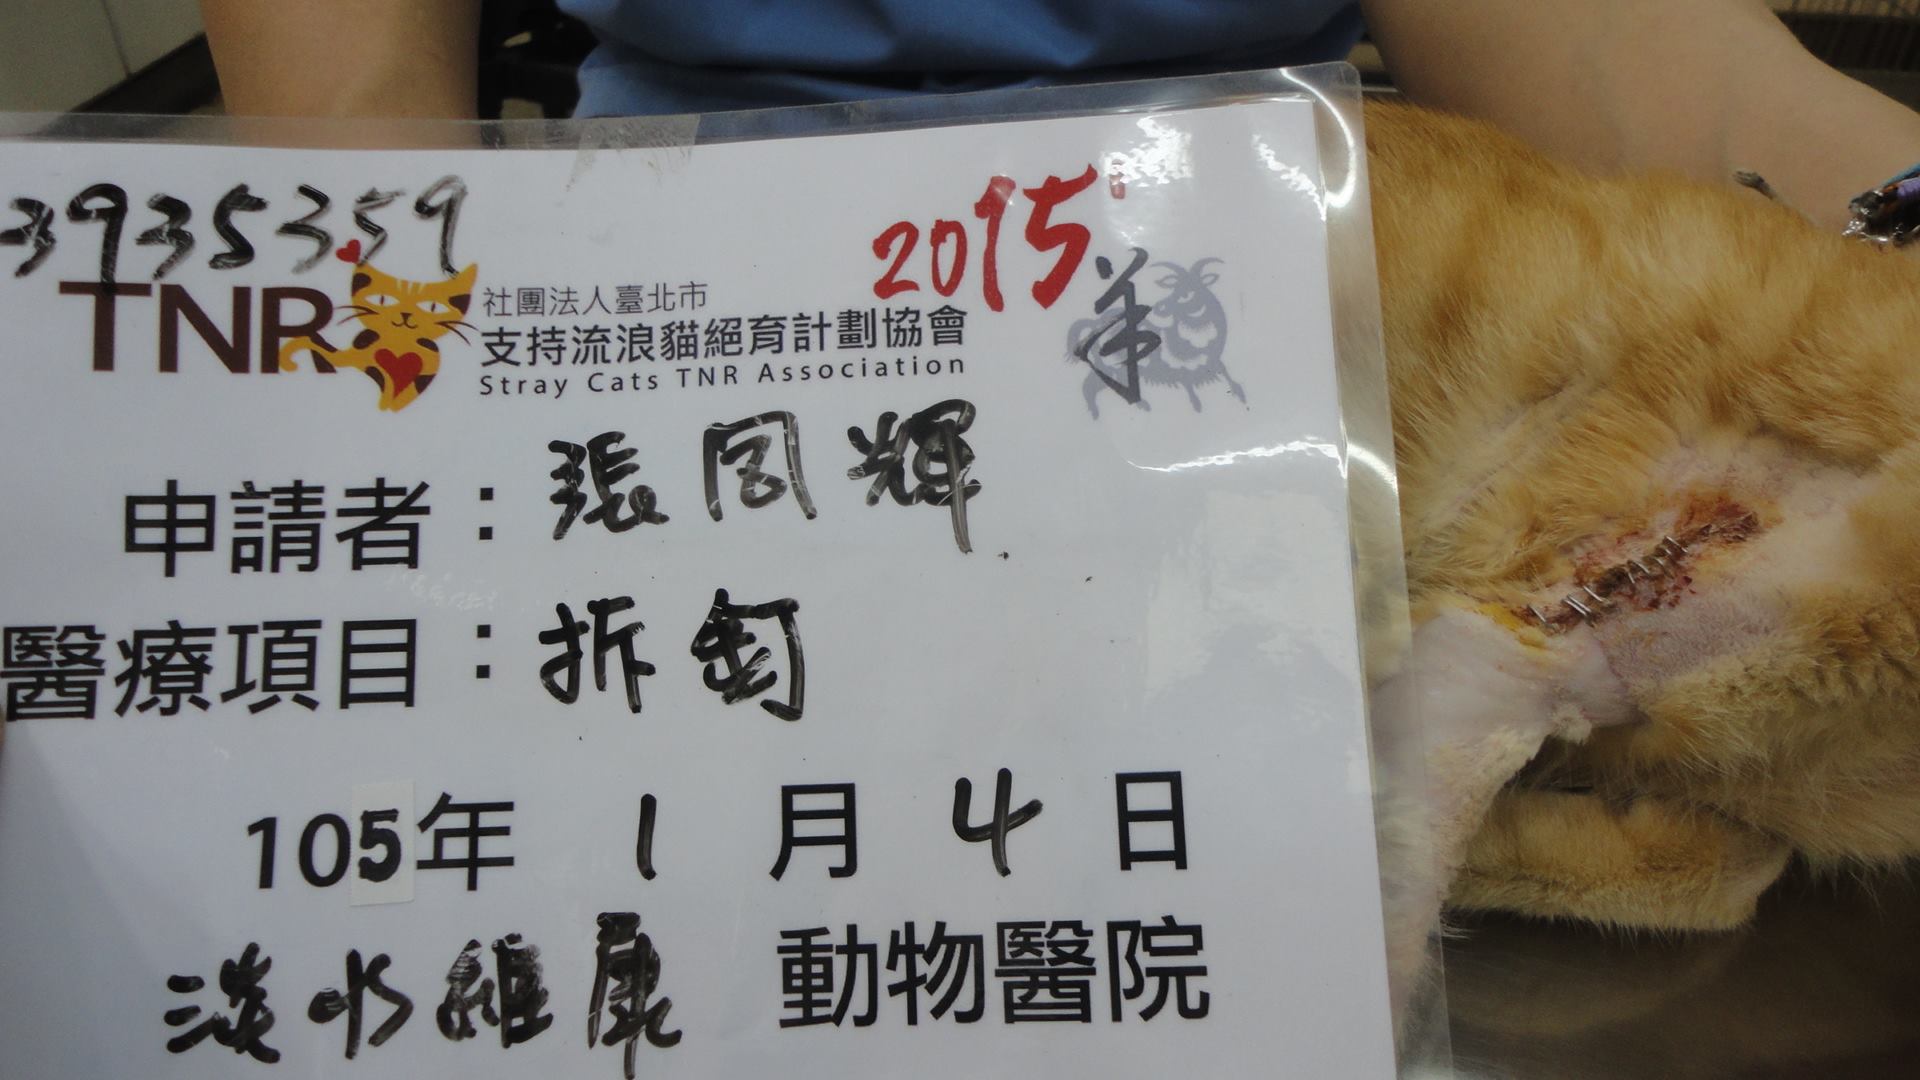 3935359
2015
羊
TNR
社團法人臺北市
支持流浪貓絕育計劃協會
Stray Cats TNR Association
申請者：張同輝
醫療項目：拆釘
105年 1 月 4 日
淡水維康 動物醫院